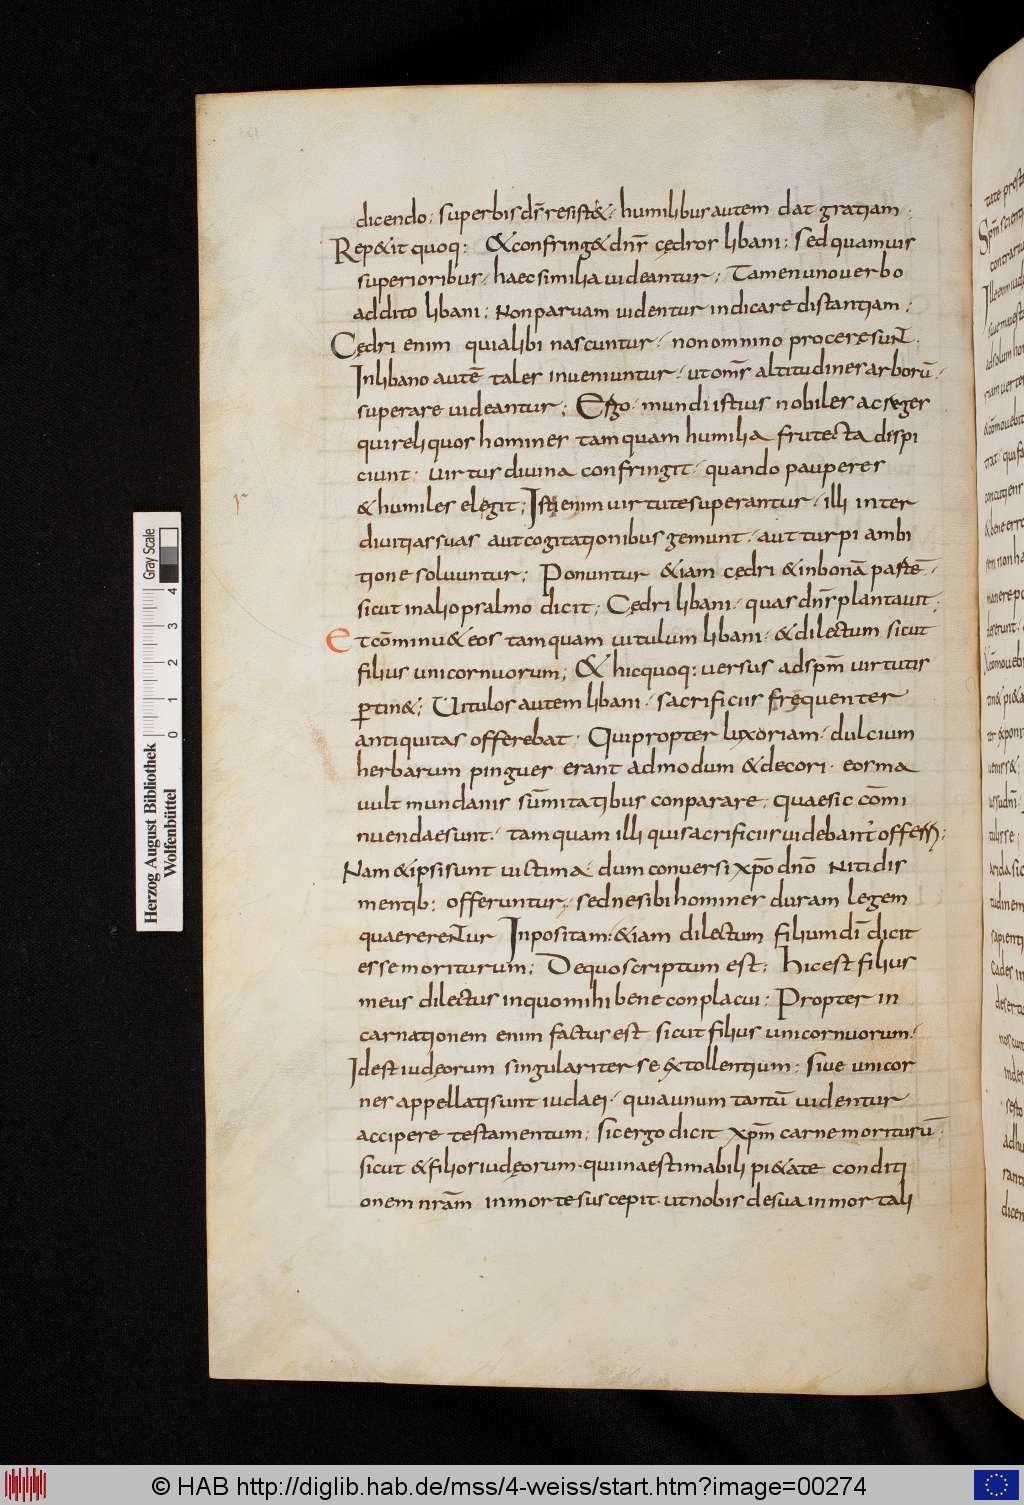 dicendo; superbis ds̄ resistit&; humilibus autem dat gratiam;
Rep&it quoq: & confring& dn̄s cędros libani; sed quamuis
superioribus, haec similia uideantur; Tamen uno uerbo
addito libani; Non paruam uidentur indicare distantiam;
Cędri enim qui alibi nascuntur, non omnino procerę sunt.
In libano autē tales inueniuntur, ut om̄s altitudines arborū
superare uideantur; Ergo mundi istius nobiles ac reges
qui reliquos homines tamquam humilia frutecta dispi
ciunt, uirtus diuina confringit, quando pauperes
& humiles elegit; Isti enim uirtute superantur, illi inter
diuitias suas aut cogitationibus gemunt, aut turpi ambi
tione soluuntur; Ponuntur & iam cędri & in bonā partē,
sicut in alio psalmo dicit; Cędri libani, quas dn̄s plantauit;
Et cōminu& eos tamquam uitulum libani, & dilectum sicut
filius unicornuorum; & hic quoq: uersus ad spm̄ uirtutis
ꝑtin&; Uitulos autem libani, sacrificiis frequenter
antiquitas offerebat; Qui propter luxoriam, dulcium
herbarum pingues erant admodum & decori, eos ma
uult mundanis sūmitatibus conparare; quae sic cōmi
nuendae sunt, tamquam illi qui sacrificiis uidebant offerri;
Nam & ipsi sunt uictima, dum conuersi xp̄o dn̄o nitidis
mentib: offeruntur, sed ne sibi homines duram legem
quaererentur Inpositam: & iam dilectum filium dī dicit
esse moriturum; De quo scriptum est; Hic est filius
meus dilectus in quo mihi bene conplacui; Propter in
carnationem enim factus est sicut filius unicornuorum,
Id est iudęorum singulariter se extollentium; siue unicor
nes appellati sunt iudaei, quia unum tantū uidentur
accipere testamentum; sic ergo dicit xp̄m carne moriturū;
sicut & filios iudęorum, qui inaestimabili pi&ate conditi
onem nr̄am in morte suscepit, ut nobis de sua inmortali
Gray Scale
4
3
2
1
0
Herzog August Bibliothek
Wolfenbüttel
© HAB http://diglib.hab.de/mss/4-weiss/start.htm?image=00274